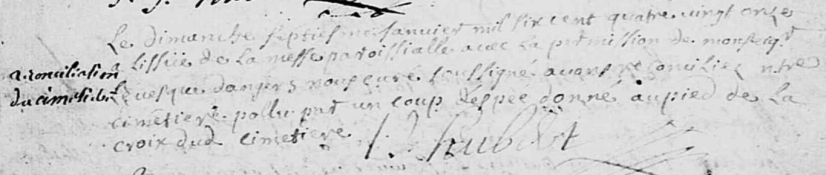 Le dimanche septiesme janvier mil six cent quatre vingt onze
a Lissüe de la messe paroissialle avec la permission de monseigr
reconciliation
du cimetiere
Levesque dangers nous curé soussigné avons reconciliez notre
cimetiere pollu par un coup despee donné au pied de la
croix dud cimetiere
J hubert